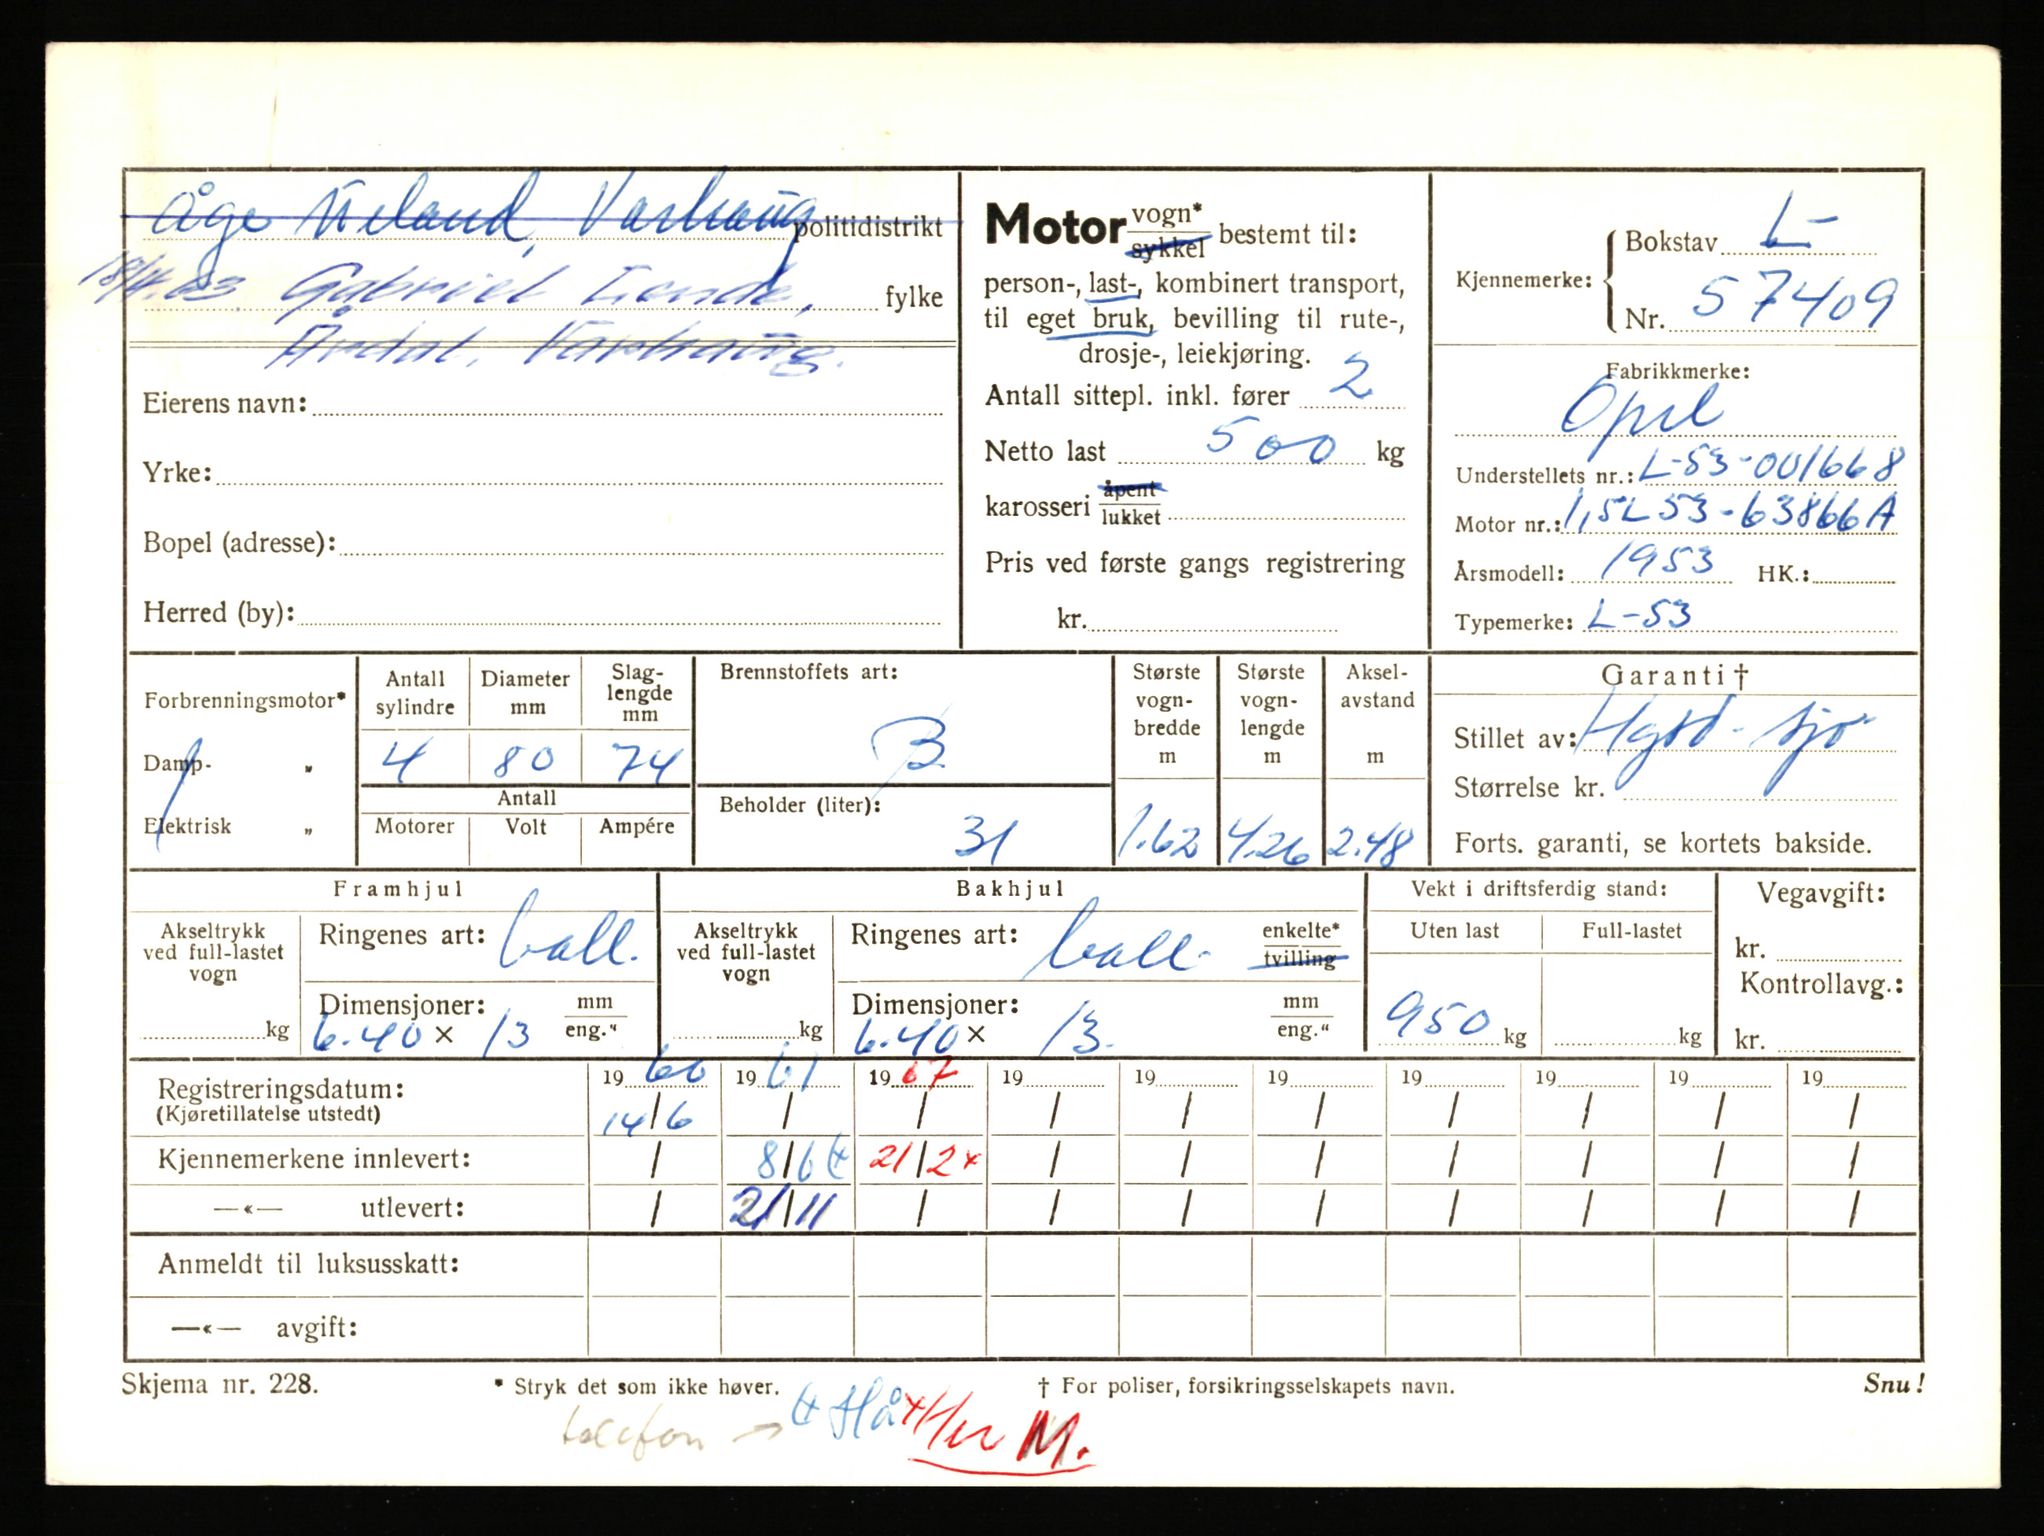 Åge Neland, Varhaug politidistrikt
18/4.63 Gabriel Lende, fylke
Årdal, Varhaug.
Eierens navn:
Yrke:
Bopel (adresse):
Herred (by):
Motor vogn* sykkel bestemt til:
person-, last-, kombinert transport,
til eget bruk, bevilling til rute-,
drosje-, leiekjøring.
Antall sittepl. inkl. fører 2
Netto last 500 kg
karosseri åpent lukket
Pris ved første gangs registrering
kr.
Kjennemerke: Bokstav L-
Nr. 57409
Fabrikkmerke:
Opel
Understellets nr.: L-53-001668
Motor nr.: 1,5L53-63866A
Årsmodell: 1953 HK.:
Typemerke: L-53
Forbrenningsmotor*
Damp- "
Elektrisk "
Antall sylindre Diameter mm Slag-lengde mm
4 80 74
Antall
Motorer Volt Ampére
Brennstoffets art:
B
Beholder (liter):
31
Største vogn-bredde m Største vogn-lengde m Aksel-avstand m
1.62 4.26 2.48
Garanti †
Stillet av:
Størrelse kr.
Forts. garanti, se kortets bakside.
Framhjul
Akseltrykk ved full-lastet vogn
kg
Ringenes art: ball.
Dimensjoner: mm eng."
6.40 x 13
Bakhjul
Akseltrykk ved full-lastet vogn
kg
Ringenes art: ball. enkelte* tvilling
Dimensjoner: mm eng."
6.40 x 13.
Vekt i driftsferdig stand:
Uten last Full-lastet
950 kg kg
Vegavgift:
kr.
Kontrollavg.:
kr.
Registreringsdatum: 19 60 19 61 19 67 19 19 19 19 19 19 19
(Kjøretillatelse utstedt) 14/6 / / / / / / / / /
Kjennemerkene innlevert: / 8/6 21/2 x / / / / / / /
—«— utlevert: / 21/11 / / / / / / / /
Anmeldt til luksusskatt:
—«— avgift:
Skjema nr. 228. * Stryk det som ikke høver. † For poliser, forsikringsselskapets navn. Snu!
telefon → Hå x Her M.